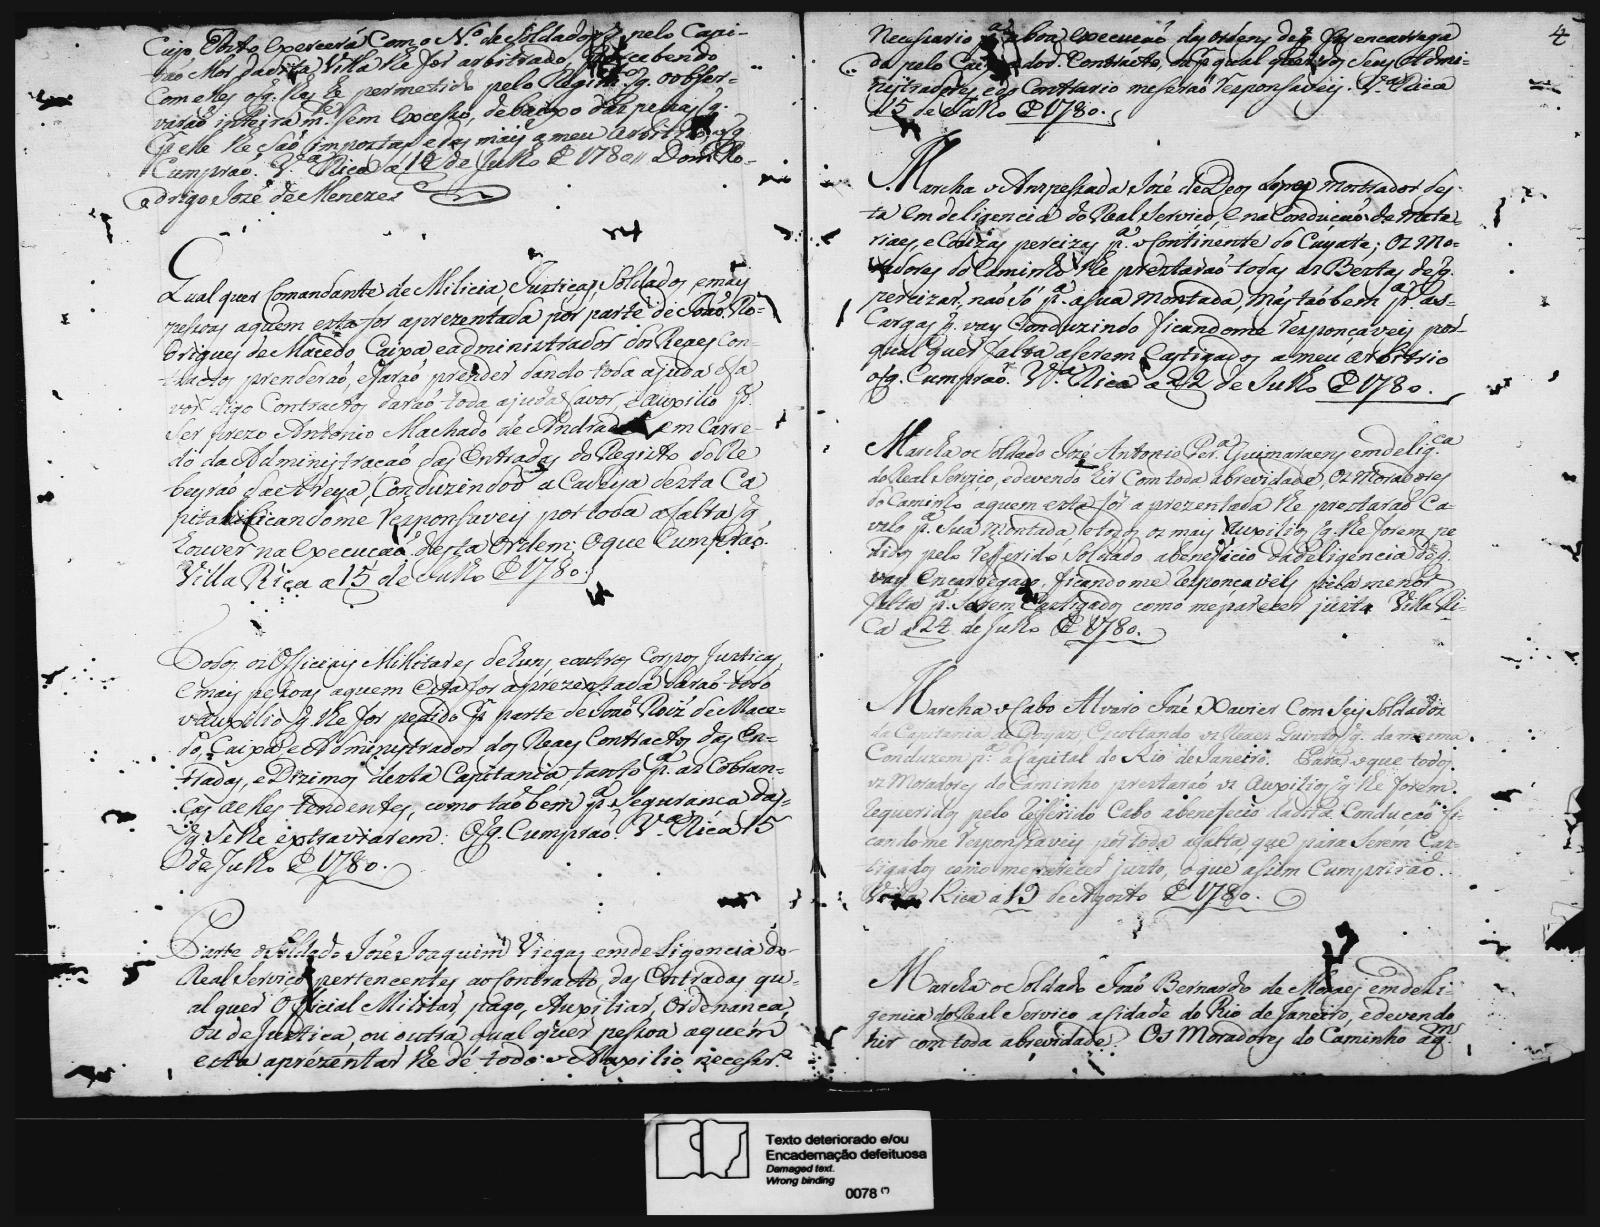 Cujo Posto exercerá Com o N.º de Soldados q̃ pelo Capi-
tão Mor da dita Villa lhe for arbitrado,
Com elles o q̃ lhes he permetido pelo Regim.to q̃. obser-
varão inteiram.te Sem excesso, debaixo das penas q̃.
p.r elle lhe são impostas e das mais a meu arbitrio o q̃
Cumprão. V.a Rica a 12 de Julho D 1780 // Dom Ro-
drigo José de Menezes
Qual quer Comandante de Milicia, Justiças, Soldados, e mais
pessoas aquem esta for aprezentada por parte de João Ro-
drigues de Macedo Caixa, e administrador dos Reaes Con-
tractos prenderaó, e faraó prender dando toda ajuda e fa
vor digo Contractos daraó toda ajuda favor, e auxilio p.a
Ser prezo Antonio Machado de Andrade em Carre-
do da Administracaó das Entradas do Registo do Re
beyraó da Areya, Conduzindoo a Cadeya desta Ca
pital ficandome Responsaveis por toda a falta q̃
houver na execucaó desta Ordem; O que Cumpraó.
Villa Rica a 15 de Julho D 1780.
Todos os Officiaes Militares de huns, e outros Corpos Justiças,
e mais pessoas aquem esta for aprezentada daraó todo
o auxilio q̃ lhe for pedido p.r parte de Joaó Roiz de Mace-
do, Caixa e Administrador dos Reaes Contractos das En-
tradas, e Dizimos desta Capitania, tanto p.a as Cobran-
ças aelles tendentes, como taõ bem p.a Segurança das
q̃ Se lhe extraviarem. O q̃. Cumpraó. V.a Rica 15
de Julho D 1780.
Parte o Soldado José Joaquim Viegas em deligencia do
Real Serviço pertencentes ao Contracto das Entradas qu-
al quer Official Militar, pago, Auxiliar, Ordenança,
ou de Justiça, ou outra qual quer pessoa aquem
esta aprezentar lhe dé todo o Auxilio necessr.º
4
Necessario p.a a boa execucaó das ordens de q̃ for encarrega
do pelo Contracto, ou p.r qual quer dos Seus Admi-
nistradores e do Contrario me seraó responsaveis. V.a Rica
15 de Julho D 1780.
Marcha o Anspessada José de Deos Lopes montrador des-
ta em deligencia do Real Serviço, e na Conducaó de mate-
riaes, e Couzas percizas p.a o Continente do Cuyaté; Os Mo-
radores do Caminho lhe prestaraó todas as Bestas de q̃.
percizar, naó só p.a a sua montada, más taó bem p.a as
Cargas q̃. vay Conduzindo ficandome responçaveis por
qual quer falta a serem Castigados a meu arbitrio
o q̃. Cumpraó. V.a Rica a 22 de Julho D 1780.
Marcha o Soldado José Antonio Per.a Guimaraens em delig.ca
do Real Serviço, e devendo hir Com toda a brevidade, Os Moradores
do Caminho aquem esta for a prezentada lhe prestaraó Ca-
valo p.a Sua montada, e todos os mais auxilios q̃. lhe forem pe
didos pelo refferido Soldado a beneficio da deligencia de q̃.
vay encarregado, ficandome responçaveis pela menor
falta p.a Serem Castigados como me parecer justo Villa Ri-
ca a 24 de Julho D 1780.
Marcha o Cabo Alvaro José Xavier Com Seis Soldados
da Capitania de Goyaz, Escoltando os Reaes Quintos q̃. da mesma
Conduzem p.a a Capital do Rio de Janeiro. Para o que todos
os Moradores do Caminho prestaraó os Auxilios q̃ lhe forem
requeridos pelo refferido Cabo a beneficio da dita Conducaó fi-
candome responsaveis por toda a falta, que para Serem Cas-
tigados como me parecer justo, o que asim Cumpriraó.
Villa Rica a 19 de Agosto D 1780.
Marcha o Soldado Joaó Bernardo de Moraes em deli-
gencia do Real Serviço a Cidade do Rio de Janeiro, e devendo
hir com toda a brevidade. Os Moradores do Caminho a q.m
Texto deteriorado e/ou
Encadernação defeituosa
Damaged text.
Wrong binding
0078 (*)